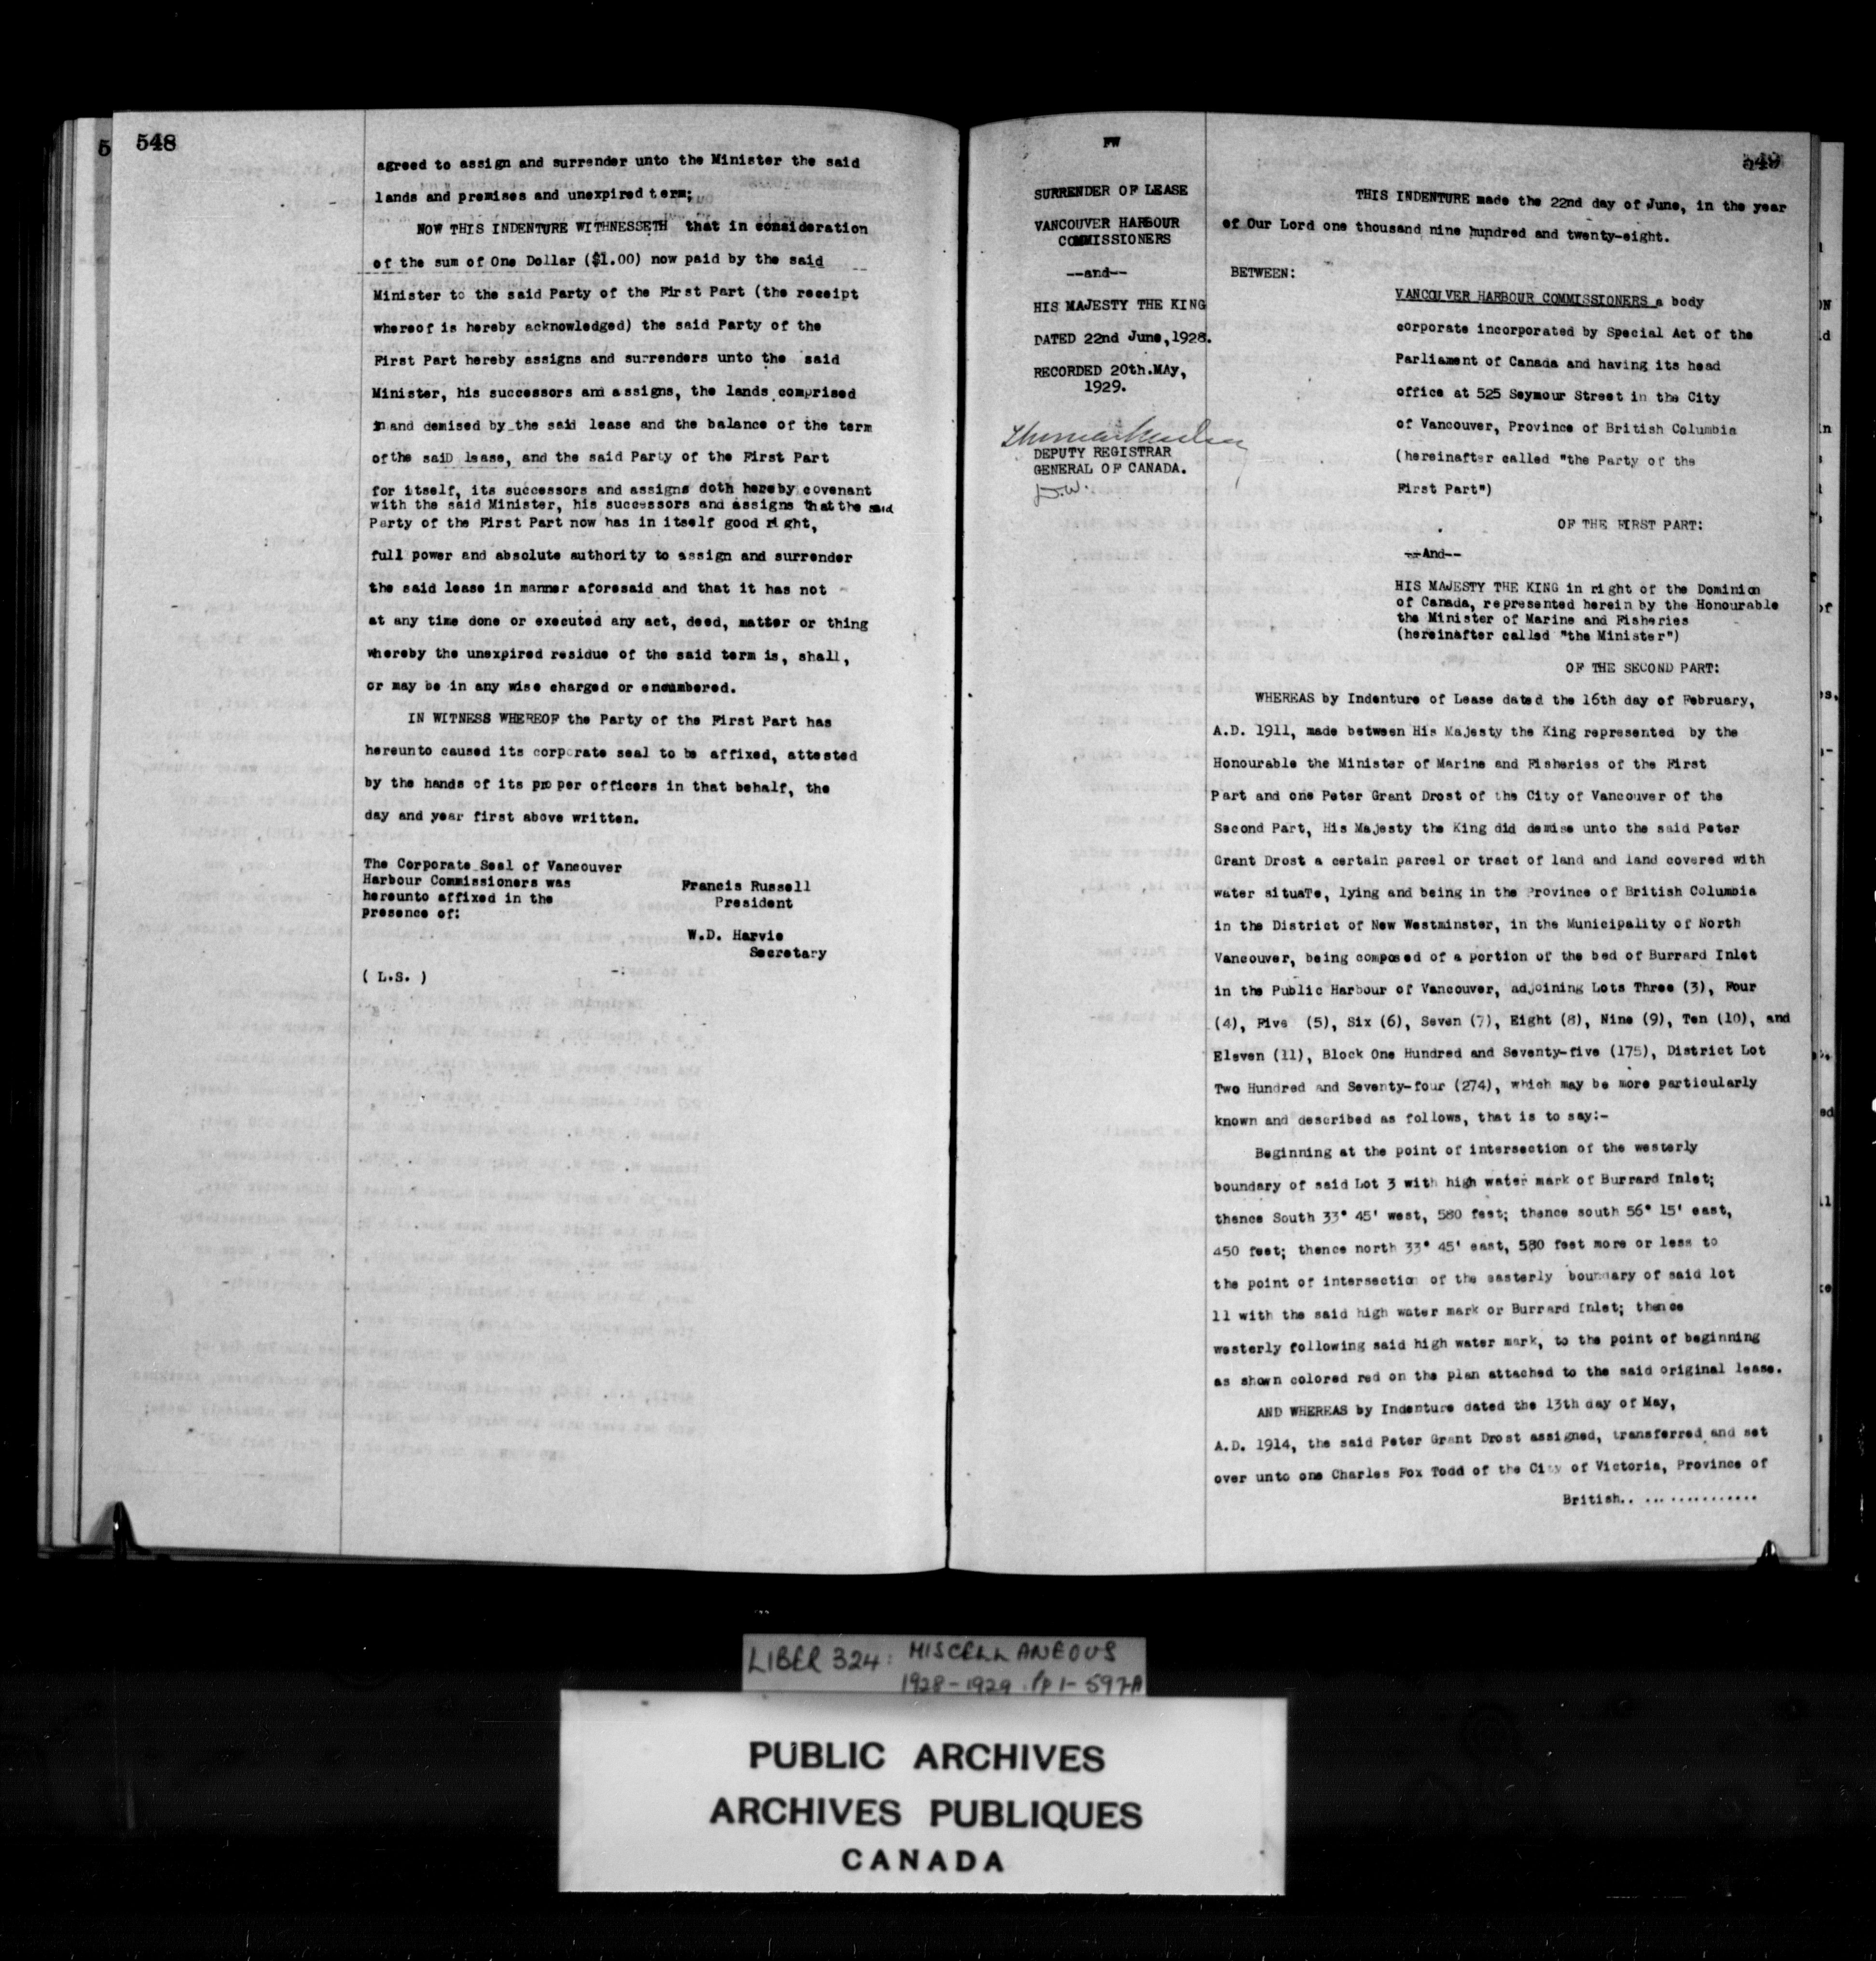 548
agreed to assign and surrender unto the Minister the said
lands and premises and unexpired term;
NOW THIS INDENTURE WITHNESSETH that in consideration
of the sum of One Dollar ($1.00) now paid by the said
Minister to the said Party of the First Part (the receipt
whereof is hereby acknowledged) the said Party of the
First Part hereby assigns and surrenders unto the said
Minister, his successors and assigns, the lands comprised
in and demised by the said lease and the balance of the term
of the saiD lease, and the said Party of the First Part
for itself, its successors and assigns doth hereby covenant
with the said Minister, his successors and assigns that the said
Party of the First Part now has in itself good right,
full power and absolute authority to assign and surrender
the said lease in manner aforesaid and that it has not
at any time done or executed any act, deed, matter or thing
whereby the unexpired residue of the said term is, shall,
or may be in any wise charged or encumbered.
IN WITNESS WHEREOF the Party of the First Part has
hereunto caused its corporate seal to be affixed, attested
by the hands of its proper officers in that behalf, the
day and year first above written.
The Corporate Seal of Vancouver
Harbour Commissioners was
hereunto affixed in the
presence of:
Francis Russell
President
W.D. Harvie
Secretary
( L.S. )
FW
549
SURRENDER OF LEASE
VANCOUVER HARBOUR
COMMISSIONERS
--and--
HIS MAJESTY THE KING
DATED 22nd June, 1928.
RECORDED 20th. MAy,
1929.
DEPUTY REGISTRAR
GENERAL OF CANADA.
THIS INDENTURE made the 22nd day of June, in the year
of Our Lord one thousand nine hundred and twenty-eight.
BETWEEN:
VANCOUVER HARBOUR COMMISSIONERS a body
corporate incorporated by Special Act of the
Parliament of Canada and having its head
office at 525 Seymour Street in the City
of Vancouver, Province of British Columbia
(hereinafter called "the Party of the
First Part")
OF THE FIRST PART:
--And--
HIS MAJESTY THE KING in right of the Dominion
of Canada, represented herein by the Honourable
the Minister of Marine and Fisheries
(hereinafter called "the Minister")
OF THE SECOND PART:
WHEREAS by Indenture of Lease dated the 16th day of February,
A.D. 1911, made between His Majesty the King represented by the
Honourable the Minister of Marine and Fisheries of the First
Part and one Peter Grant Drost of the City of Vancouver of the
Second Part, His Majesty the King did demise unto the said Peter
Grant Drost a certain parcel or tract of land and land covered with
water situaTe, lying and being in the Province of British Columbia
in the District of New Westminster, in the Municipality of North
Vancouver, being composed of a portion of the bed of Burrard Inlet
in the Public Harbour of Vancouver, adjoining Lots Three (3), Four
(4), Five (5), Six (6), Seven (7), Eight (8), Nine (9), Ten (10), and
Eleven (11), Block One Hundred and Seventy-five (175), District Lot
Two Hundred and Seventy-four (274), which may be more particularly
known and described as follows, that is to say:-
Beginning at the point of intersection of the westerly
boundary of said Lot 3 with high water mark of Burrard Inlet;
thence South 33° 45' west, 580 feet; thence south 56° 15' east,
450 feet; thence north 33° 45' east, 580 feet more or less to
the point of intersection of the easterly boundary of said lot
11 with the said high water mark or Burrard Inlet; thence
westerly following said high water mark, to the point of beginning
as shown colored red on the plan attached to the said original lease.
AND WHEREAS by Indenture dated the 13th day of May,
A.D. 1914, the said Peter Grant Drost assigned, transferred and set
over unto one Charles Fox Todd of the City of Victoria, Province of
British.. ..............
LIBER 324: MISCELLANEOUS
1928-1929. Pp 1-597A
PUBLIC ARCHIVES
ARCHIVES PUBLIQUES
CANADA